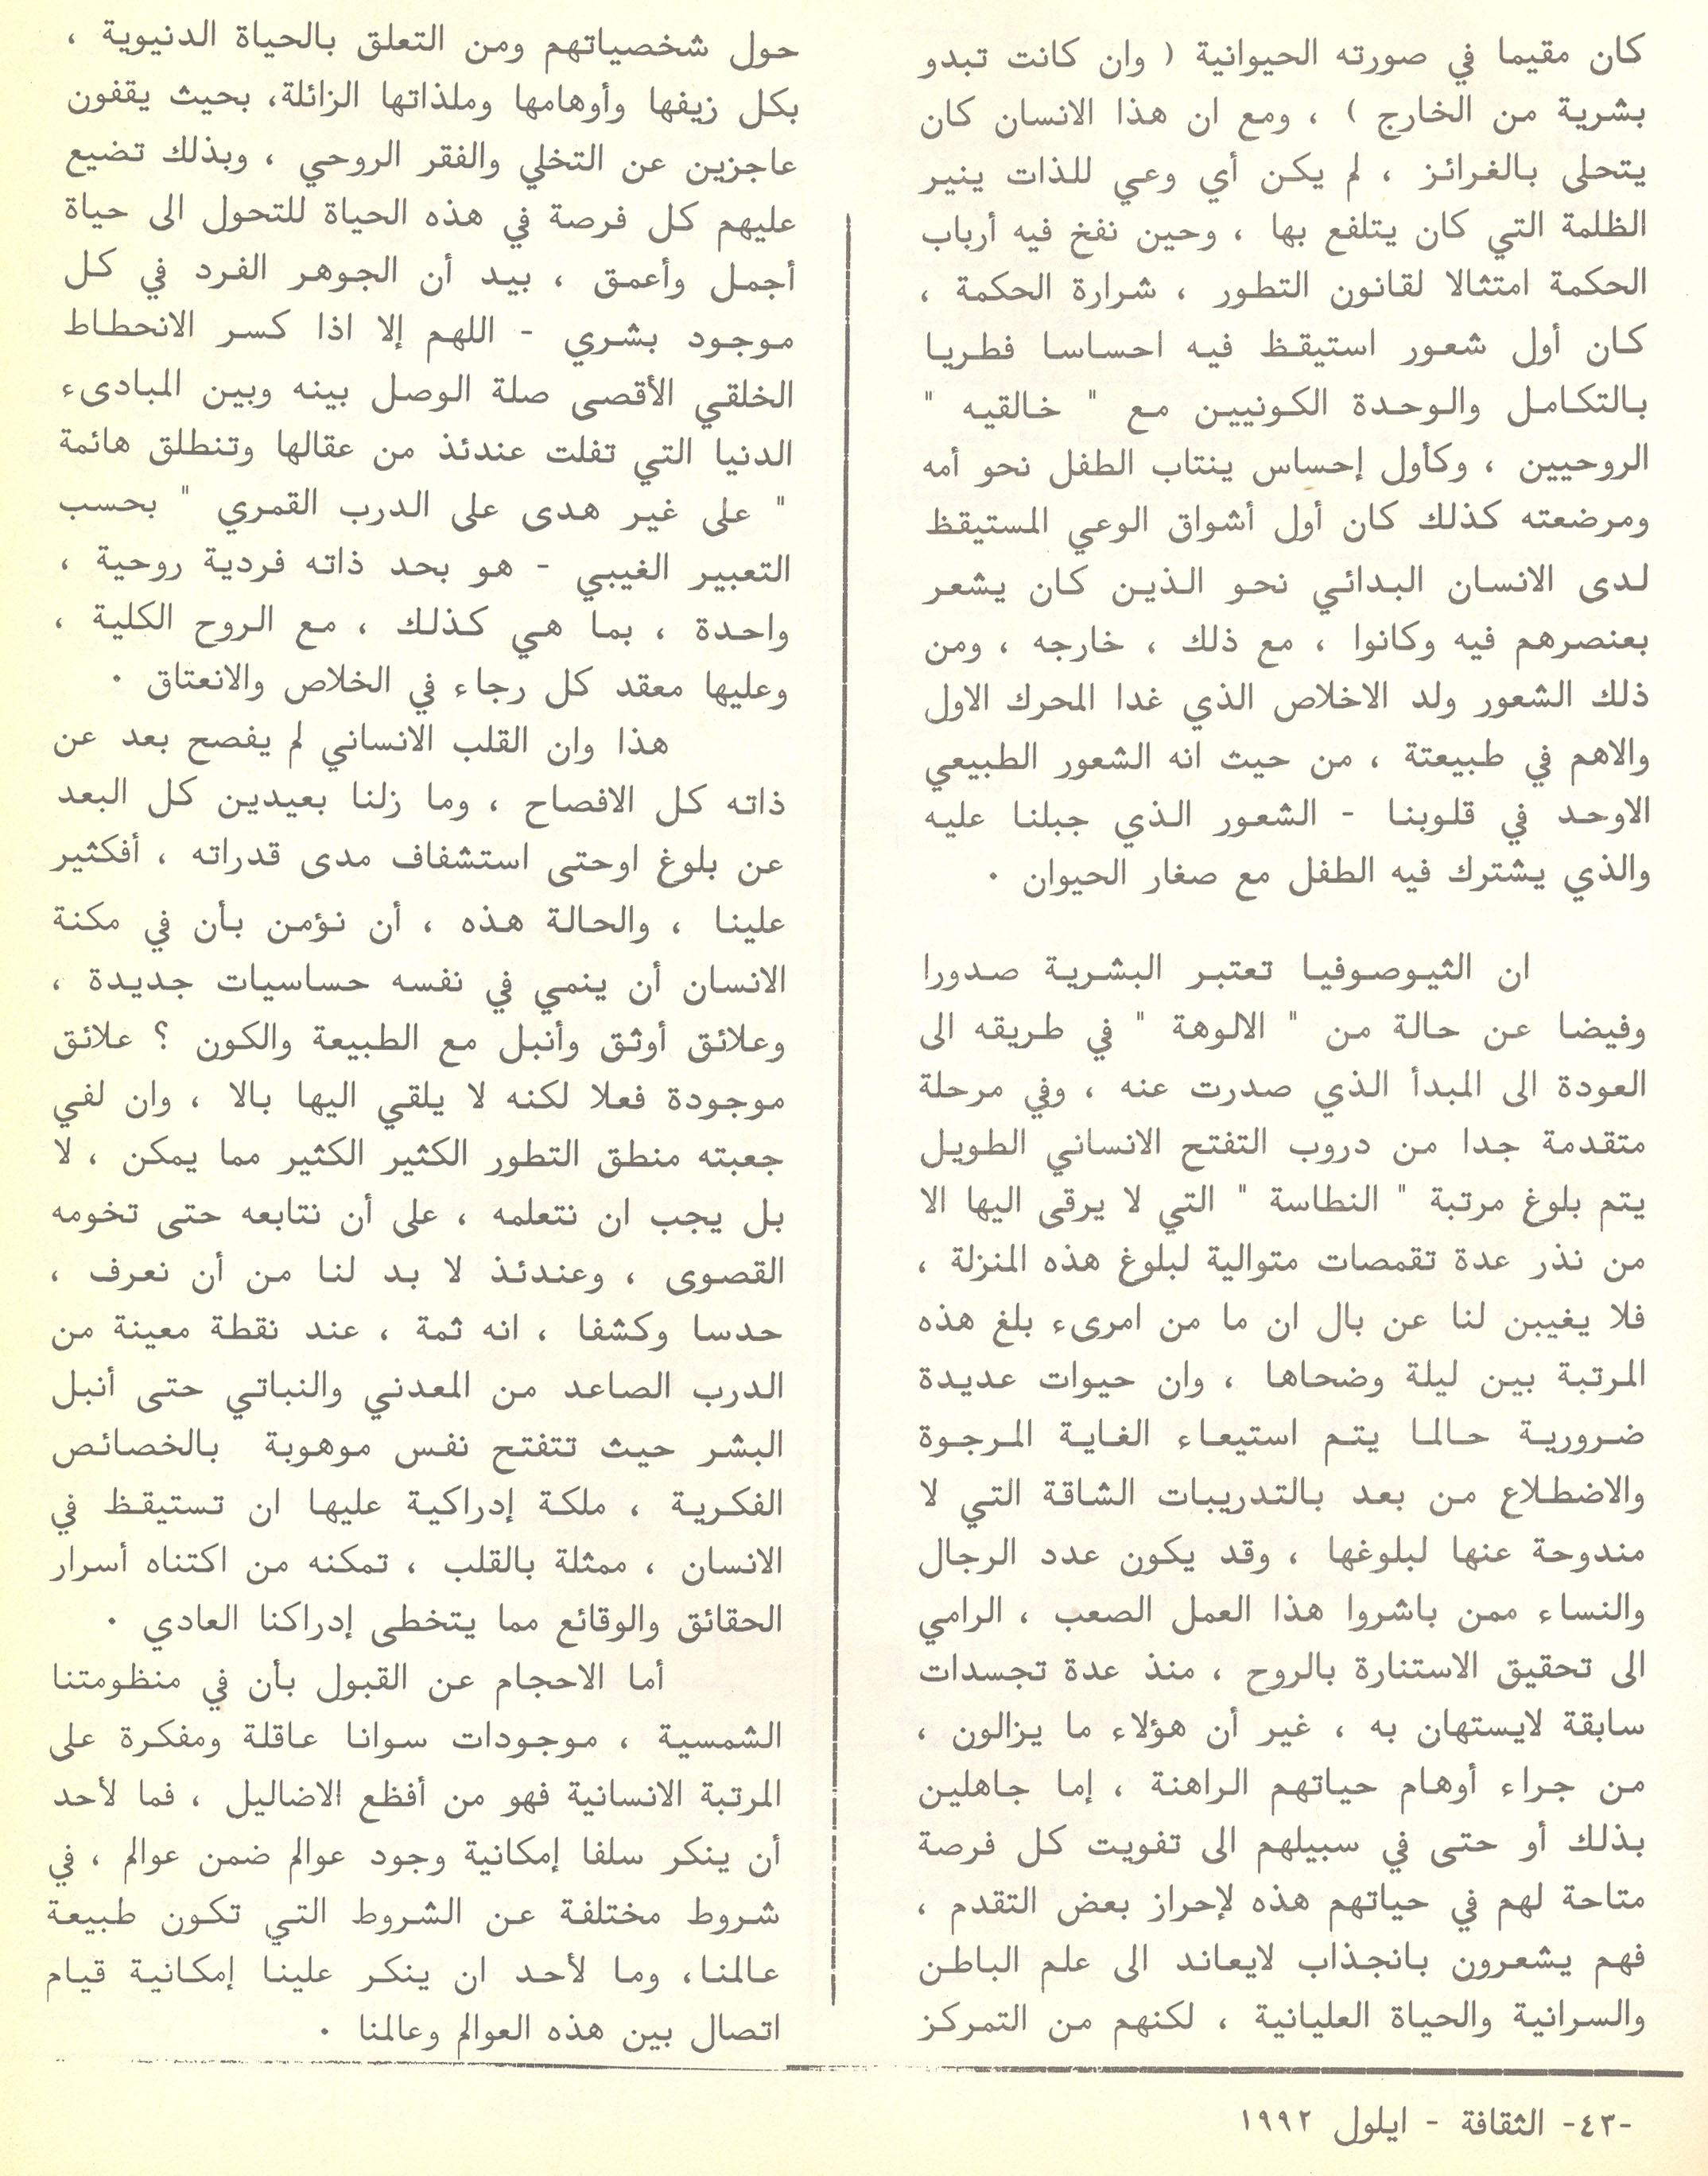 كان مقيما في صورته الحيوانية ( وان كانت تبدو
بشرية من الخارج ) ، ومع ان هذا الانسان كان
يتحلى بالغرائز ، لم يكن أي وعي للذات ينير
الظلمة التي كان يتلفع بها ، وحين نفخ فيه أرباب
الحكمة امتثالا لقانون التطور ، شرارة الحكمة ،
كان أول شعور استيقظ فيه احساسا فطريا
بالتكامل والوحدة الكونيين مع " خالقيه "
الروحيين ، وكأول إحساس ينتاب الطفل نحو أمه
ومرضعته كذلك كان أول أشواق الوعي المستيقظ
لدى الانسان البدائي نحو الذين كان يشعر
بعنصرهم فيه وكانوا ، مع ذلك ، خارجه ، ومن
ذلك الشعور ولد الاخلاص الذي غدا المحرك الاول
والاهم في طبيعتة ، من حيث انه الشعور الطبيعي
الاوحد في قلوبنا - الشعور الذي جبلنا عليه
والذي يشترك فيه الطفل مع صغار الحيوان .
ان الثيوصوفيا تعتبر البشرية صدورا
وفيضا عن حالة من " الالوهة " في طريقه الى
العودة الى المبدأ الذي صدرت عنه ، وفي مرحلة
متقدمة جدا من دروب التفتح الانساني الطويل
يتم بلوغ مرتبة " النطاسة " التي لا يرقى اليها الا
من نذر عدة تقمصات متوالية لبلوغ هذه المنزلة ،
فلا يغيبن لنا عن بال ان ما من امرىء بلغ هذه
المرتبة بين ليلة وضحاها ، وان حيوات عديدة
ضرورية حالما يتم استيعاء الغاية المرجوة
والاضطلاع من بعد بالتدريبات الشاقة التي لا
مندوحة عنها لبلوغها ، وقد يكون عدد الرجال
والنساء ممن باشروا هذا العمل الصعب ، الرامي
الى تحقيق الاستنارة بالروح ، منذ عدة تجسدات
سابقة لايستهان به ، غير أن هؤلاء ما يزالون ،
من جراء أوهام حياتهم الراهنة ، إما جاهلين
بذلك أو حتى في سبيلهم الى تفويت كل فرصة
متاحة لهم في حياتهم هذه لإحراز بعض التقدم ،
فهم يشعرون بانجذاب لايعاند الى علم الباطن
والسرانية والحياة العليانية ، لكنهم من التمركز
حول شخصياتهم ومن التعلق بالحياة الدنيوية ،
بكل زيفها وأوهامها وملذاتها الزائلة، بحيث يقفون
عاجزين عن التخلي والفقر الروحي ، وبذلك تضيع
عليهم كل فرصة في هذه الحياة للتحول الى حياة
أجمل وأعمق ، بيد أن الجوهر الفرد في كل
موجود بشري - اللهم إلا اذا كسر الانحطاط
الخلقي الأقصى صلة الوصل بينه وبين المبادىء
الدنيا التي تفلت عندئذ من عقالها وتنطلق هائمة
" على غير هدى على الدرب القمري " بحسب
التعبير الغيبي - هو بحد ذاته فردية روحية ،
واحدة ، بما هي كذلك ، مع الروح الكلية ،
وعليها معقد كل رجاء في الخلاص والانعتاق .
هذا وان القلب الانساني لم يفصح بعد عن
ذاته كل الافصاح ، وما زلنا بعيدين كل البعد
عن بلوغ اوحتى استشفاف مدى قدراته ، أفكثير
علينا ، والحالة هذه ، أن نؤمن بأن في مكنة
الانسان أن ينمي في نفسه حساسيات جديدة ،
وعلائق أوثق وأنبل مع الطبيعة والكون ؟ علائق
موجودة فعلا لكنه لا يلقي اليها بالا ، وان لفي
جعبته منطق التطور الكثير الكثير مما يمكن ، لا
بل يجب ان نتعلمه ، على أن نتابعه حتى تخومه
القصوى ، وعندئذ لا بد لنا من أن نعرف ،
حدسا وكشفا ، انه ثمة ، عند نقطة معينة من
الدرب الصاعد من المعدني والنباتي حتى أنبل
البشر حيث تتفتح نفس موهوبة بالخصائص
الفكرية ، ملكة إدراكية عليها ان تستيقظ في
الانسان ، ممثلة بالقلب ، تمكنه من اكتناه أسرار
الحقائق والوقائع مما يتخطى إدراكنا العادي .
أما الاحجام عن القبول بأن في منظومتنا
الشمسية ، موجودات سوانا عاقلة ومفكرة على
المرتبة الانسانية فهو من أفظع الاضاليل ، فما لأحد
أن ينكر سلفا إمكانية وجود عوالم ضمن عوالم ، في
شروط مختلفة عن الشروط التي تكون طبيعة
عالمنا، وما لأحد ان ينكر علينا إمكانية قيام
اتصال بين هذه العوالم وعالمنا .
-٤٣- الثقافة - ايلول ١٩٩٢